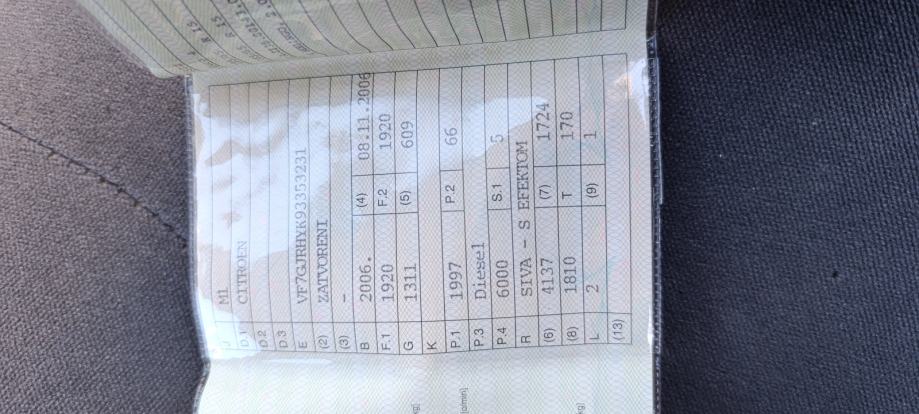 J M1
D.1 CITROEN
D.2
D.3
E VF7GJRHYK93353231
(2) ZATVORENI
(3) -
B 2006. (4) 08.11.2006
F.1 1920 F.2 1920
G 1311 (5) 609
K
P.1 1997 P.2 66
P.3 Diesel
P.4 6000 S.1 5
R SIVA - S EFEKTOM
(6) 4137 (7) 1724
(8) 1810 T 170
L 2 (9) 1
(13)